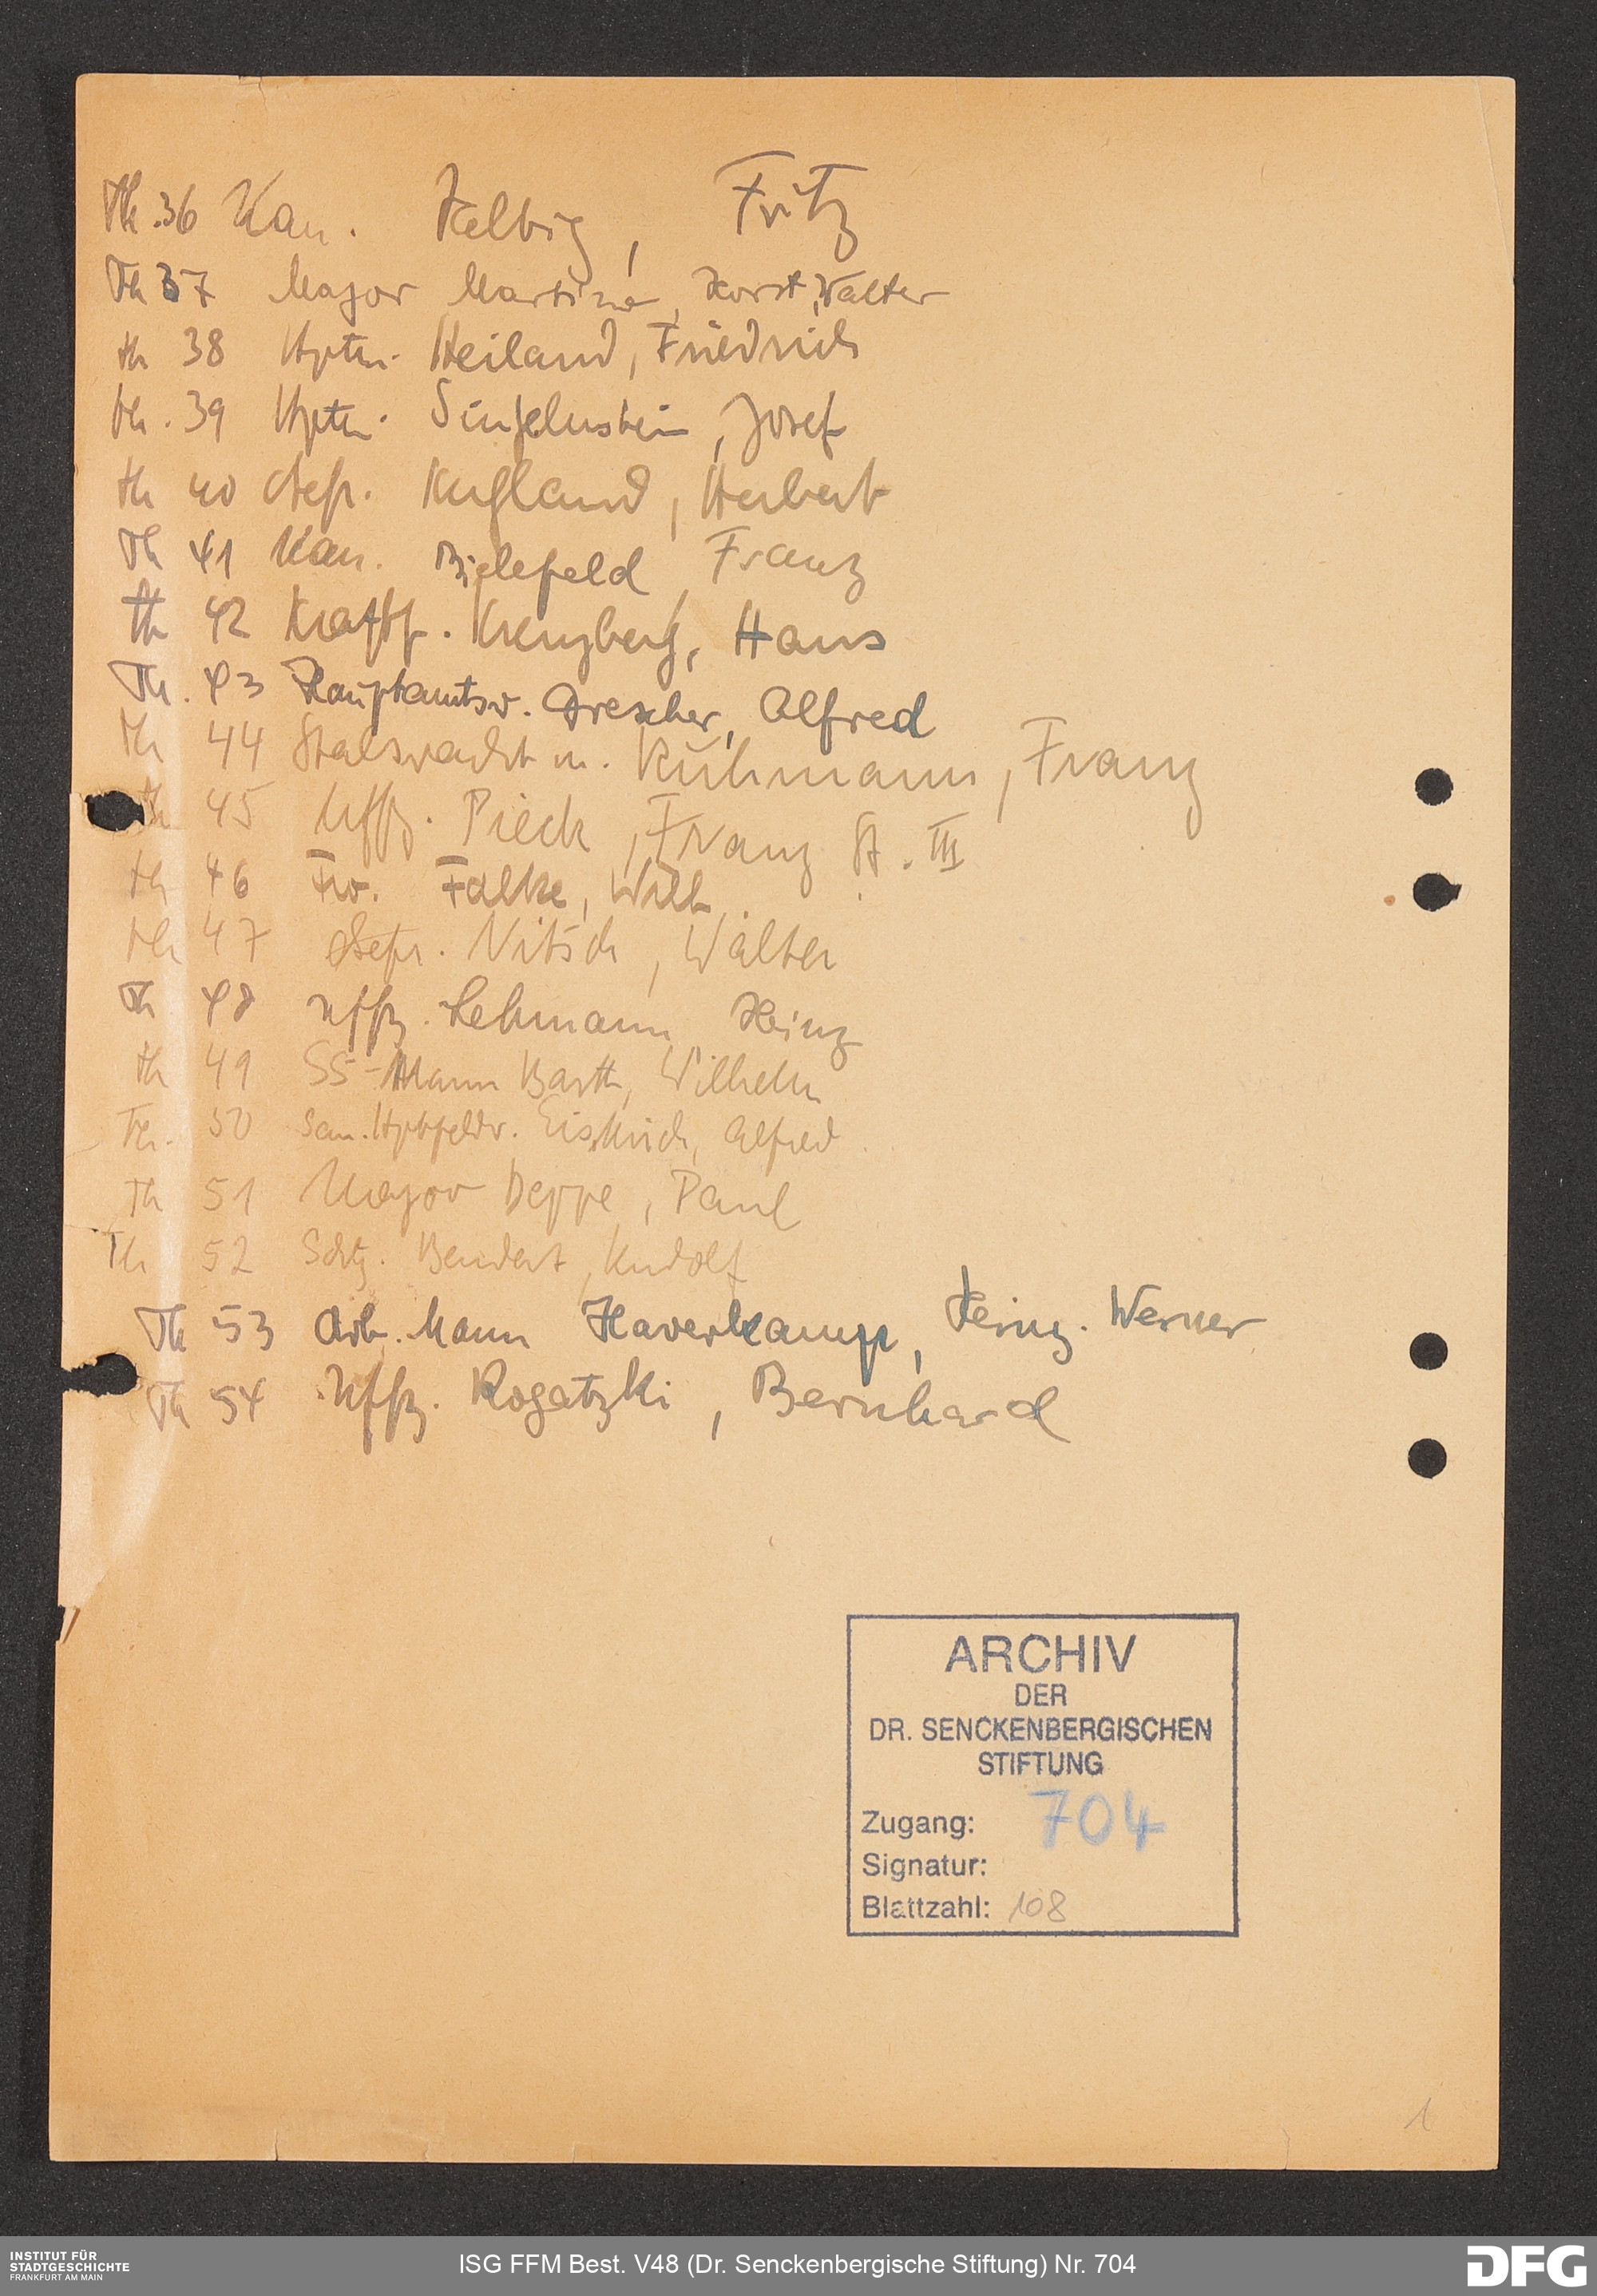 Th. 36 Kan. Helbig, Fritz
Th 37 Major Martine, Horst, Walter
th 38 Hptm. Heiland, Friedrich
th. 39 Hptm. Singelnstein, Josef
th 40 Gefr. Kugland, Herbert
Th 41 Kan. Bielefeld Franz
th 42 Kraftf. Kreuzberg, Hans
Th. 43 Hauptamtsv. Drescher, Alfred
th 44 Stabswachtm. Kühmann, Franz
th 45 Uffz. Pieck, Franz St. III
th 46 Fw. Falke, Wilh.
th 47 Gefr. Nitsch, Walter
Th 48 Uffz. Lehmann Heinz
th 49 SS-Mann Barth, Wilhelm
Th. 50 San.Hptfeldw. Alfred
Th 51 Major Deppe, Paul
Th 52 Schtz. Bendert, Rudolf
Th 53 Arb. Mann Haverkamp, Heinz. Werner
Th 54 Uffz. Rogatzki, Bernhard
ARCHIV
DER
DR. SENCKENBERGISCHEN
STIFTUNG
Zugang: 704
Signatur:
Blattzahl: 108
1
INSTITUT FÜR
STADTGESCHICHTE
FRANKFURT AM MAIN
ISG FFM Best. V48 (Dr. Senckenbergische Stiftung) Nr. 704
DFG